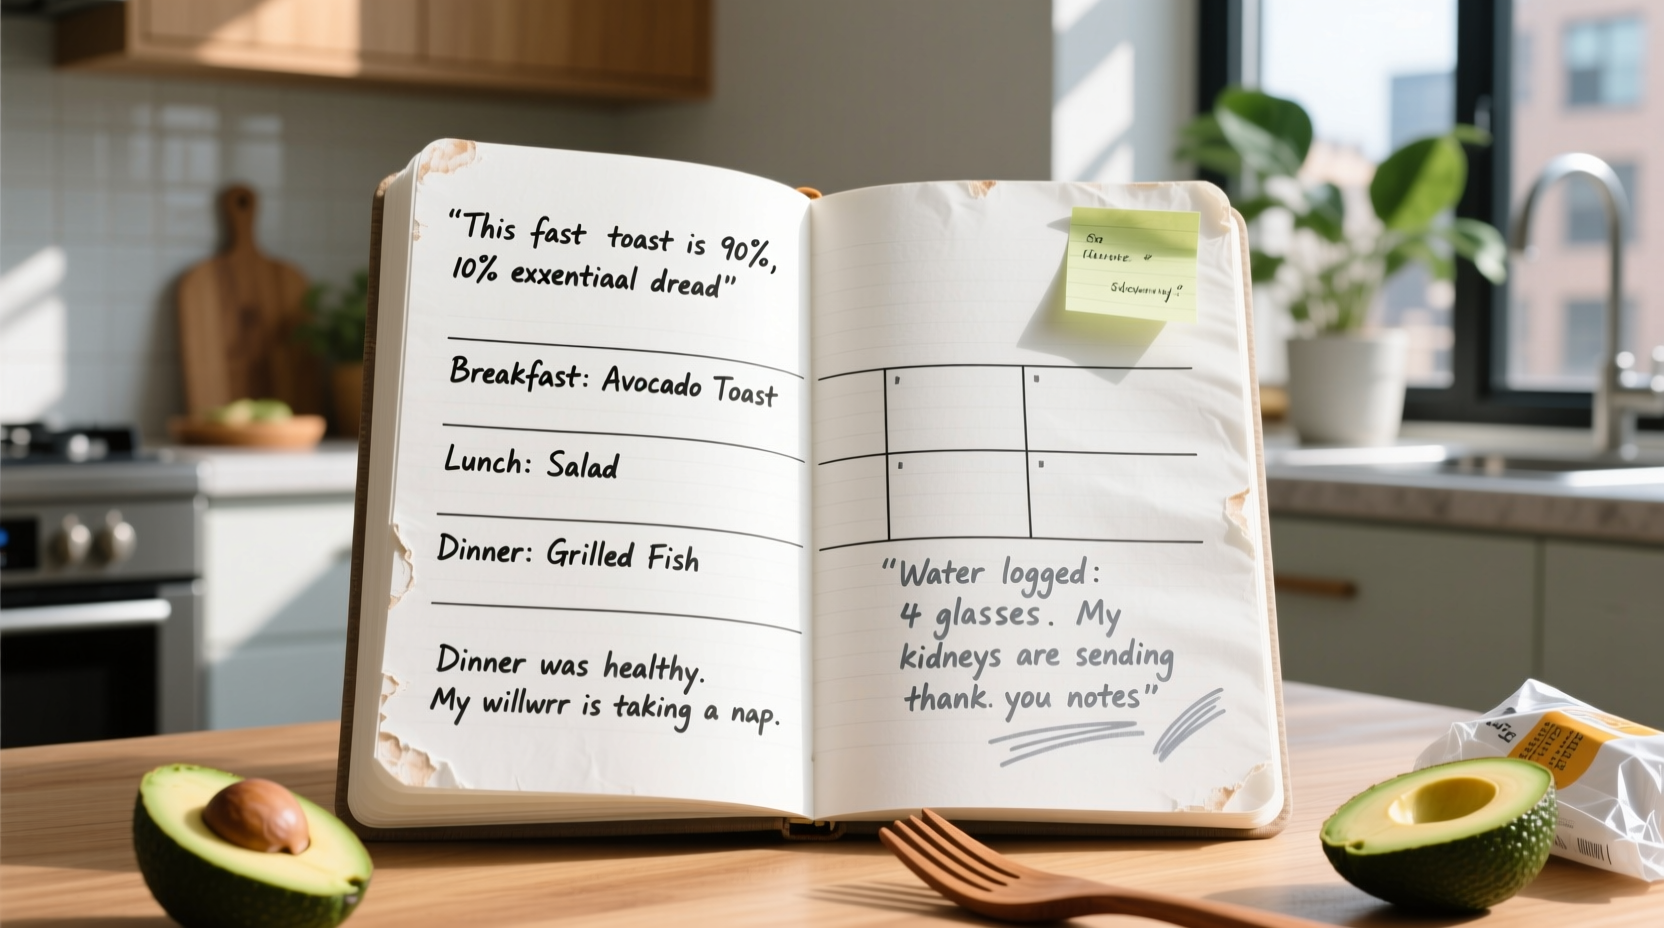 “This fast toast is 90%,
10% exxentiaal dread”
Breakfast: Avocado Toast
Lunch: Salad
Dinner: Grilled Fish
Dinner was healthy.
My willwrr is taking a nap.
“Water logged:
4 glasses. My
kidneys are sending
thank. you notes”